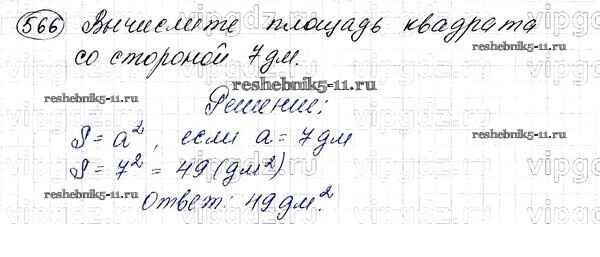 566 Вычислите площадь квадрата
со стороной 7 дм.
reshebnik5-11.ru
reshebnik5-11.ru
Решение:
reshebnik5-11.ru
S = a², если a = 7 дм
S = 7² = 49 (дм²)
reshebnik5-11.ru
reshebnik5-11.ru
Ответ: 49 дм².